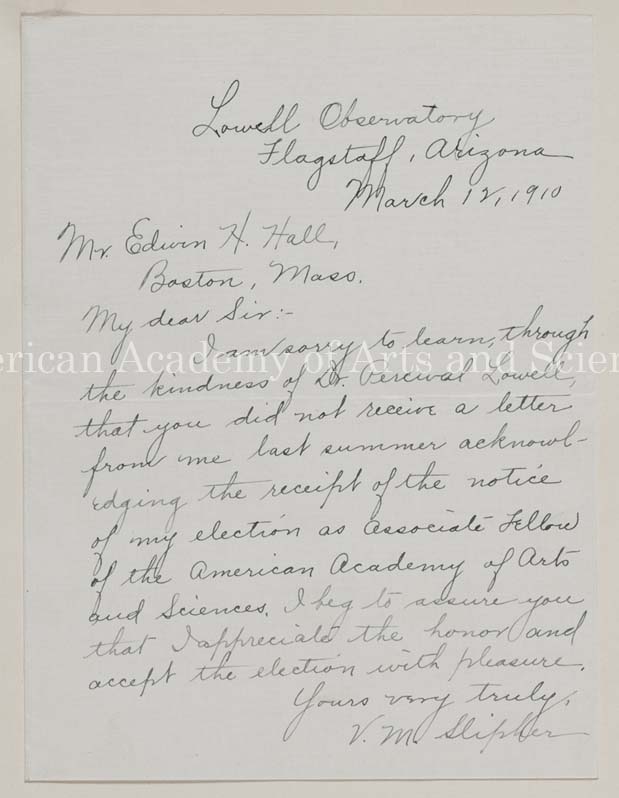 Lowell Observatory
Flagstaff, Arizona
March 12, 1910
Mr. Edwin H. Hall,
Boston, Mass.
My dear Sir:-
I am sorry to learn, through
American Academy of Arts and Scien
the kindness of Dr. Percival Lowell,
that you did not receive a letter
from me last summer acknowl-
edging the receipt of the notice
of my election as Associate Fellow
of the American Academy of Arts
and Sciences. I beg to assure you
that I appreciate the honor and
accept the election with pleasure.
Yours very truly,
V. M. Slipher